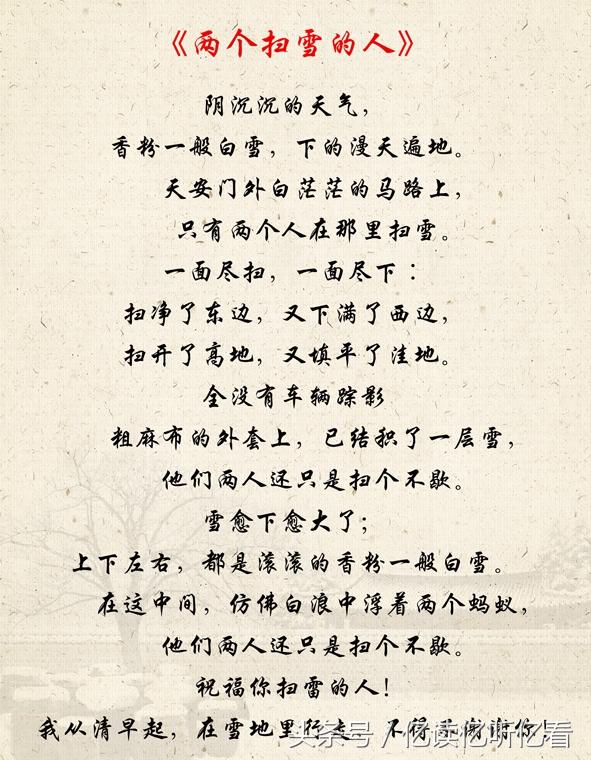 《两个扫雪的人》
阴沉沉的天气，
香粉一般白雪，下的漫天遍地。
天安门外白茫茫的马路上，
只有两个人在那里扫雪。
一面尽扫，一面尽下：
扫净了东边，又下满了西边，
扫开了高地，又填平了洼地。
全没有车辆踪影
粗麻布的外套上，已结积了一层雪，
他们两人还只是扫个不歇。
雪愈下愈大了；
上下左右，都是滚滚的香粉一般白雪。
在这中间，仿佛白浪中浮着两个蚂蚁，
他们两人还只是扫个不歇。
祝福你扫雷的人！
我从清早起，在雪地里行走，不得不谢谢你！
头条号 / 亿读亿听亿看